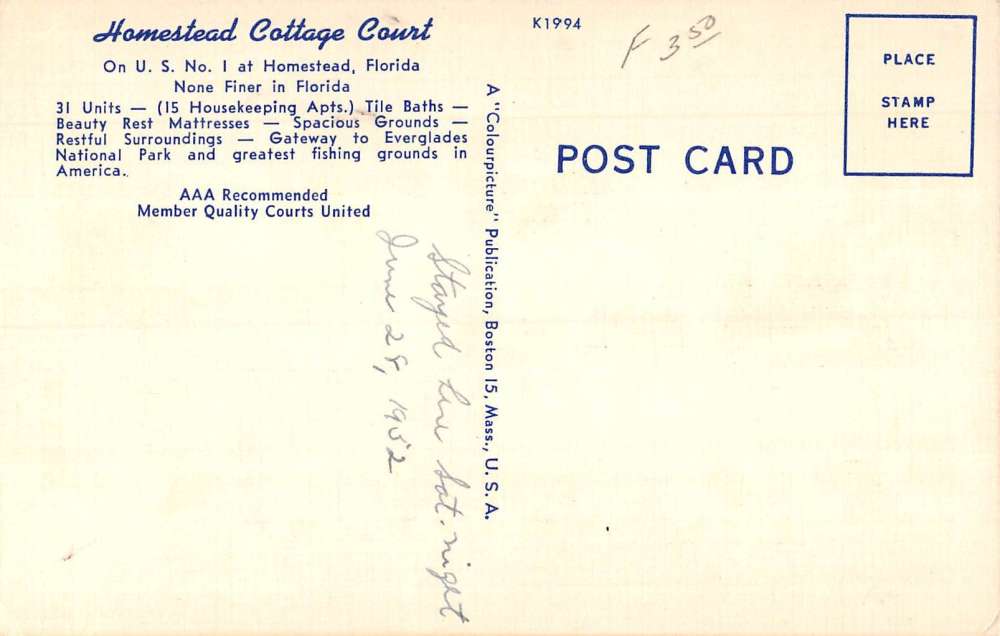 Homestead Cottage Court
On U. S. No. 1 at Homestead, Florida
None Finer in Florida
31 Units — (15 Housekeeping Apts.) Tile Baths —
Beauty Rest Mattresses — Spacious Grounds —
Restful Surroundings — Gateway to Everglades
National Park and greatest fishing grounds in
America.
AAA Recommended
Member Quality Courts United
Stayed here Sat. night
June 28, 1952
A "Colourpicture" Publication, Boston 15, Mass., U. S. A.
K1994
F 3 50
POST CARD
PLACE
STAMP
HERE